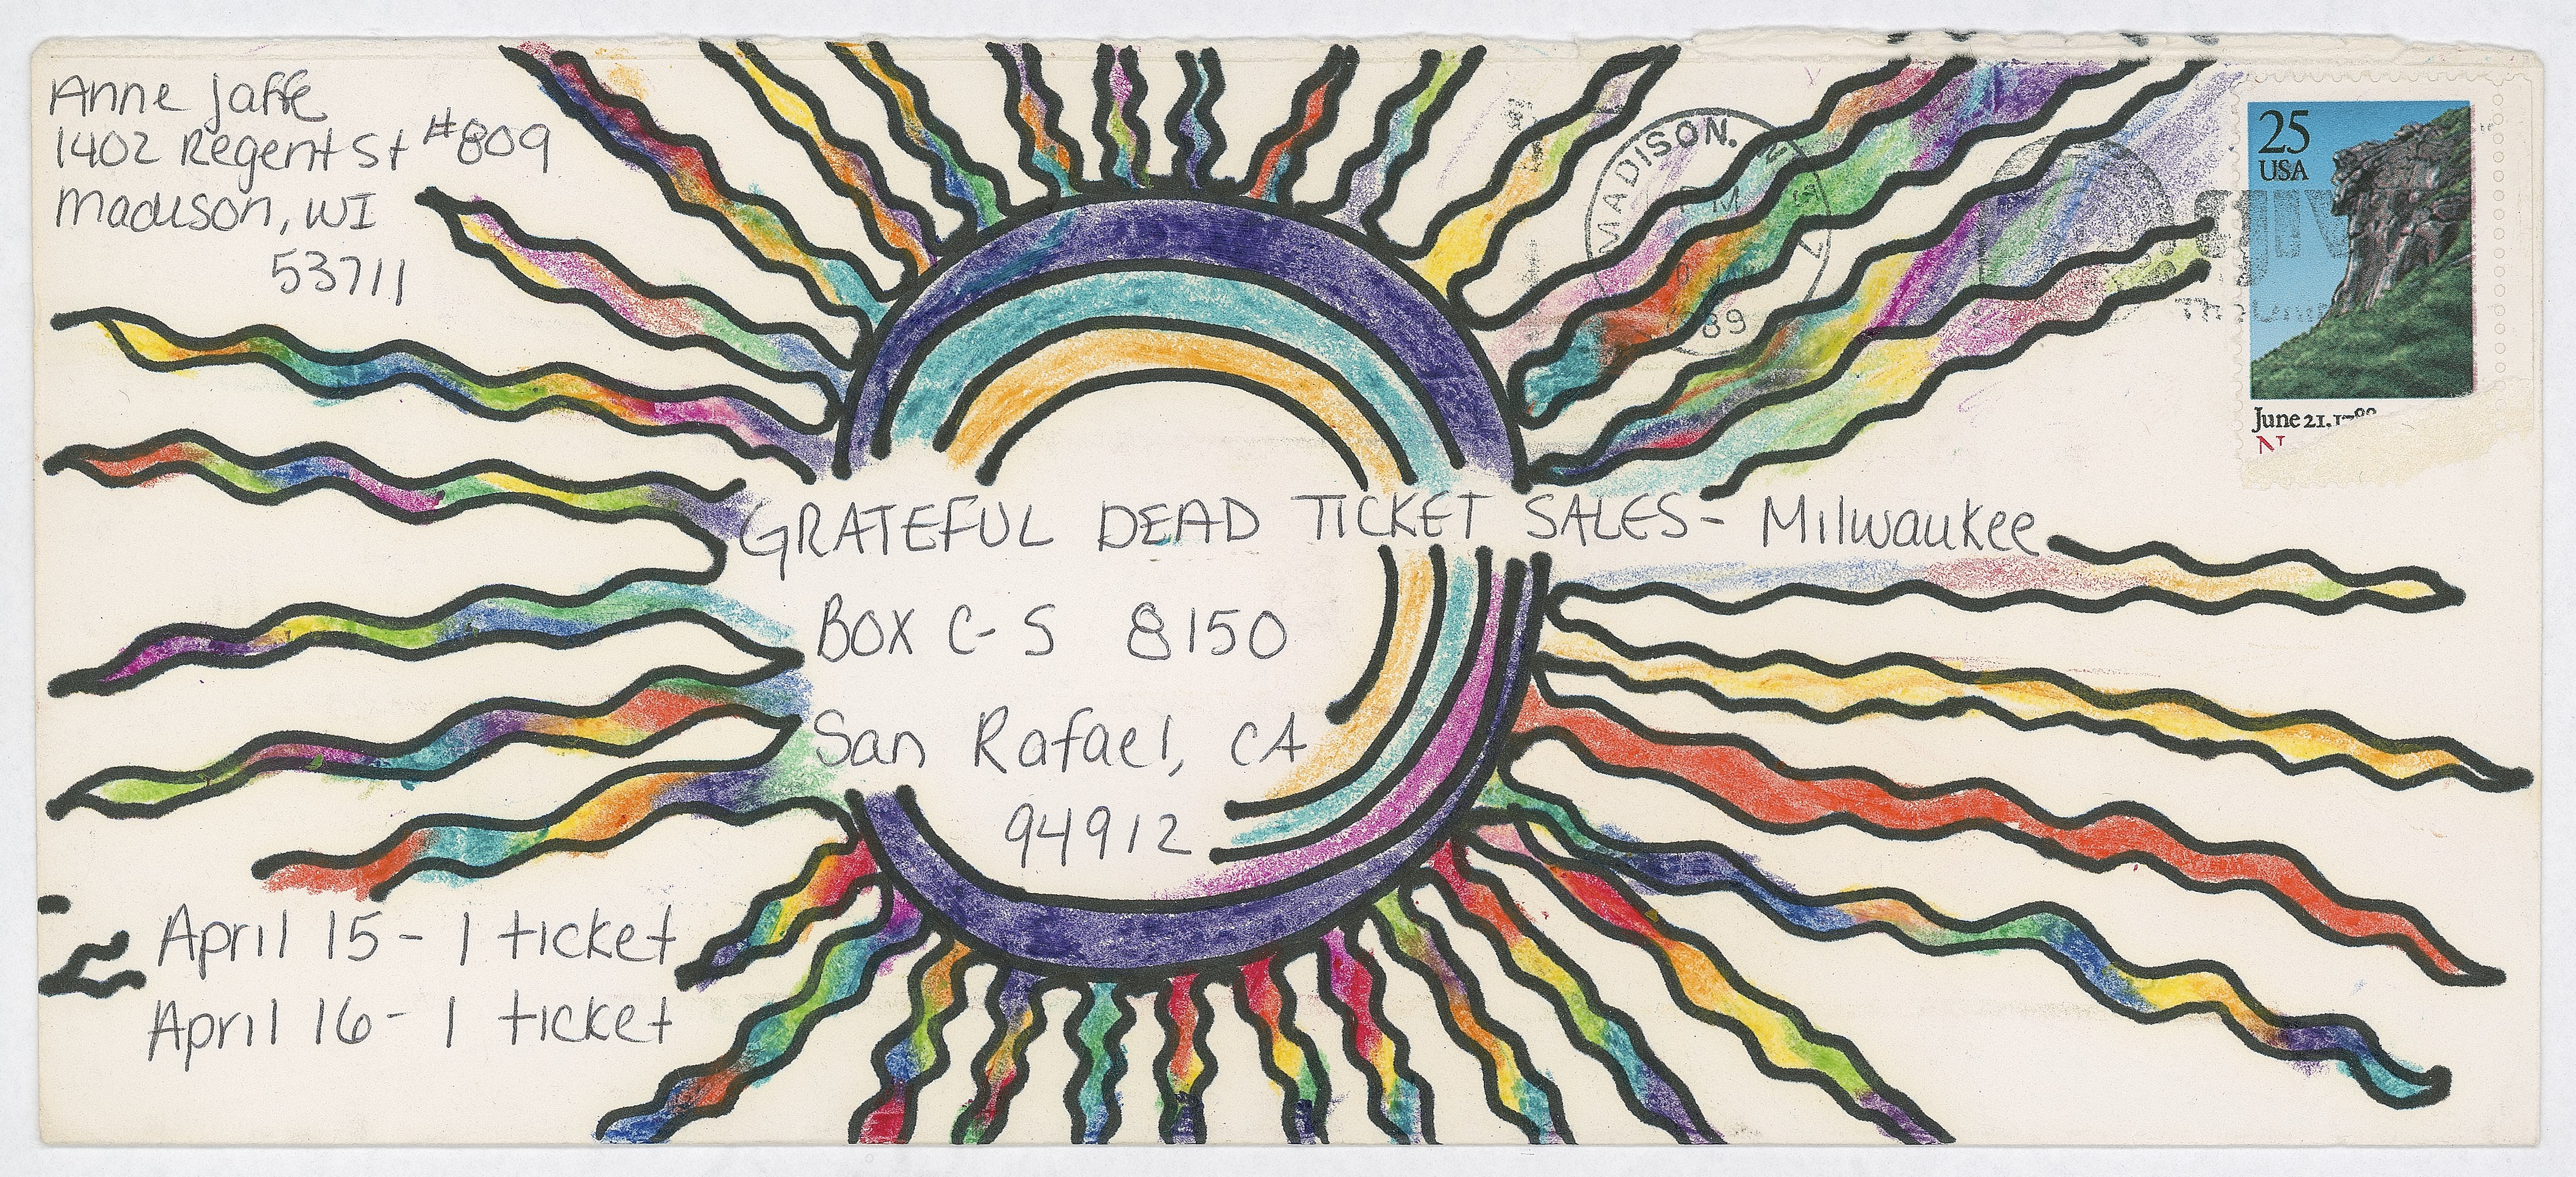 Anne Jaffe
1402 Regent St #809
Madison, WI
53711
MADISON, WI
PM
89
25
USA
June 21, 1788
GRATEFUL DEAD TICKET SALES- Milwaukee
BOX C-S 8150
San Rafael, CA
94912
April 15- 1 ticket
April 16- 1 ticket